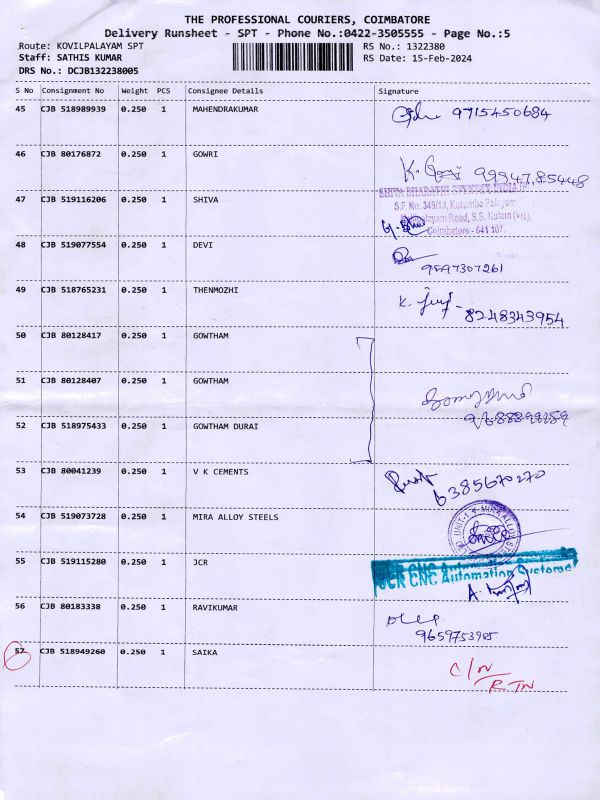 THE PROFESSIONAL COURIERS, COIMBATORE
Delivery Runsheet - SPT - Phone No.:0422-3505555 - Page No.:5
Route: KOVILPALAYAM SPT RS No.: 1322380
Staff: SATHIS KUMAR RS Date: 15-Feb-2024
DRS No.: DCJB132238005
S No Consignment No Weight PCS Consignee Details Signature
45 CJB 518989939 0.250 1 MAHENDRAKUMAR 9715450684
46 CJB 80176872 0.250 1 GOWRI K. 99947,85448
47 CJB 519116206 0.250 1 SHIVA
S.F. No. 349/1J, Kurumba Palayam
Road, S.S. Kulam (Via),
Coimbatore - 641 107.
48 CJB 519077554 0.250 1 DEVI
9597307261
49 CJB 518765231 0.250 1 THENMOZHI K.
8248343954
50 CJB 80128417 0.250 1 GOWTHAM
51 CJB 80128407 0.250 1 GOWTHAM
52 CJB 518975433 0.250 1 GOWTHAM DURAI
53 CJB 80041239 0.250 1 V K CEMENTS
6385670270
54 CJB 519073728 0.250 1 MIRA ALLOY STEELS
UNIT-1 MIRA ALLOY
55 CJB 519115280 0.250 1 JCR
JCR CNC Automation Systems
56 CJB 80183338 0.250 1 RAVIKUMAR
9659753985
57 CJB 518949260 0.250 1 SAIKA C/N
RTN